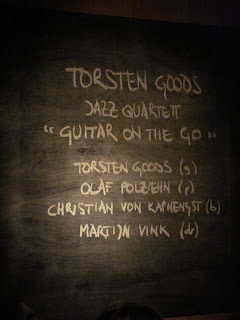 TORSTEN GOODS
JAZZ QUARTETT
"GUITAR ON THE GO"
TORSTEN GOODS (g)
OLAF POLZIEHN (p)
CHRISTIAN VON KAPHENGST (b)
MARTIJN VINK (dr)